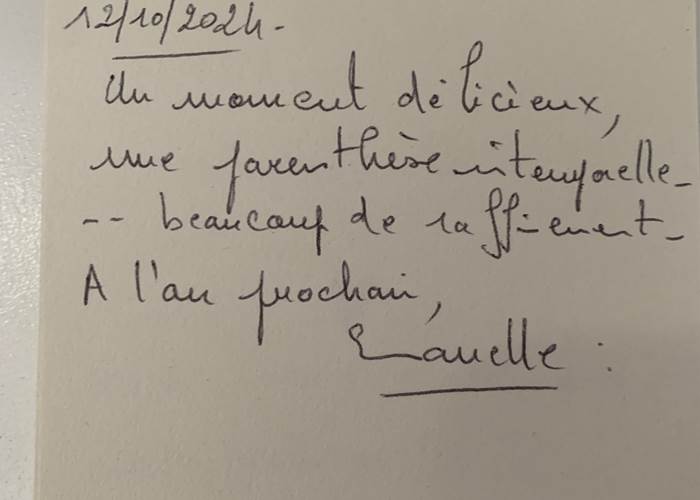 12/10/2024.
Un moment délicieux,
une parenthèse intemporelle
-- beaucoup de raffinement.
A l'an prochain,